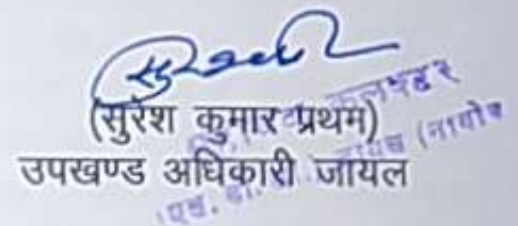 (सुरेश कुमार प्रथम)
उपखण्ड अधिकारी जायल